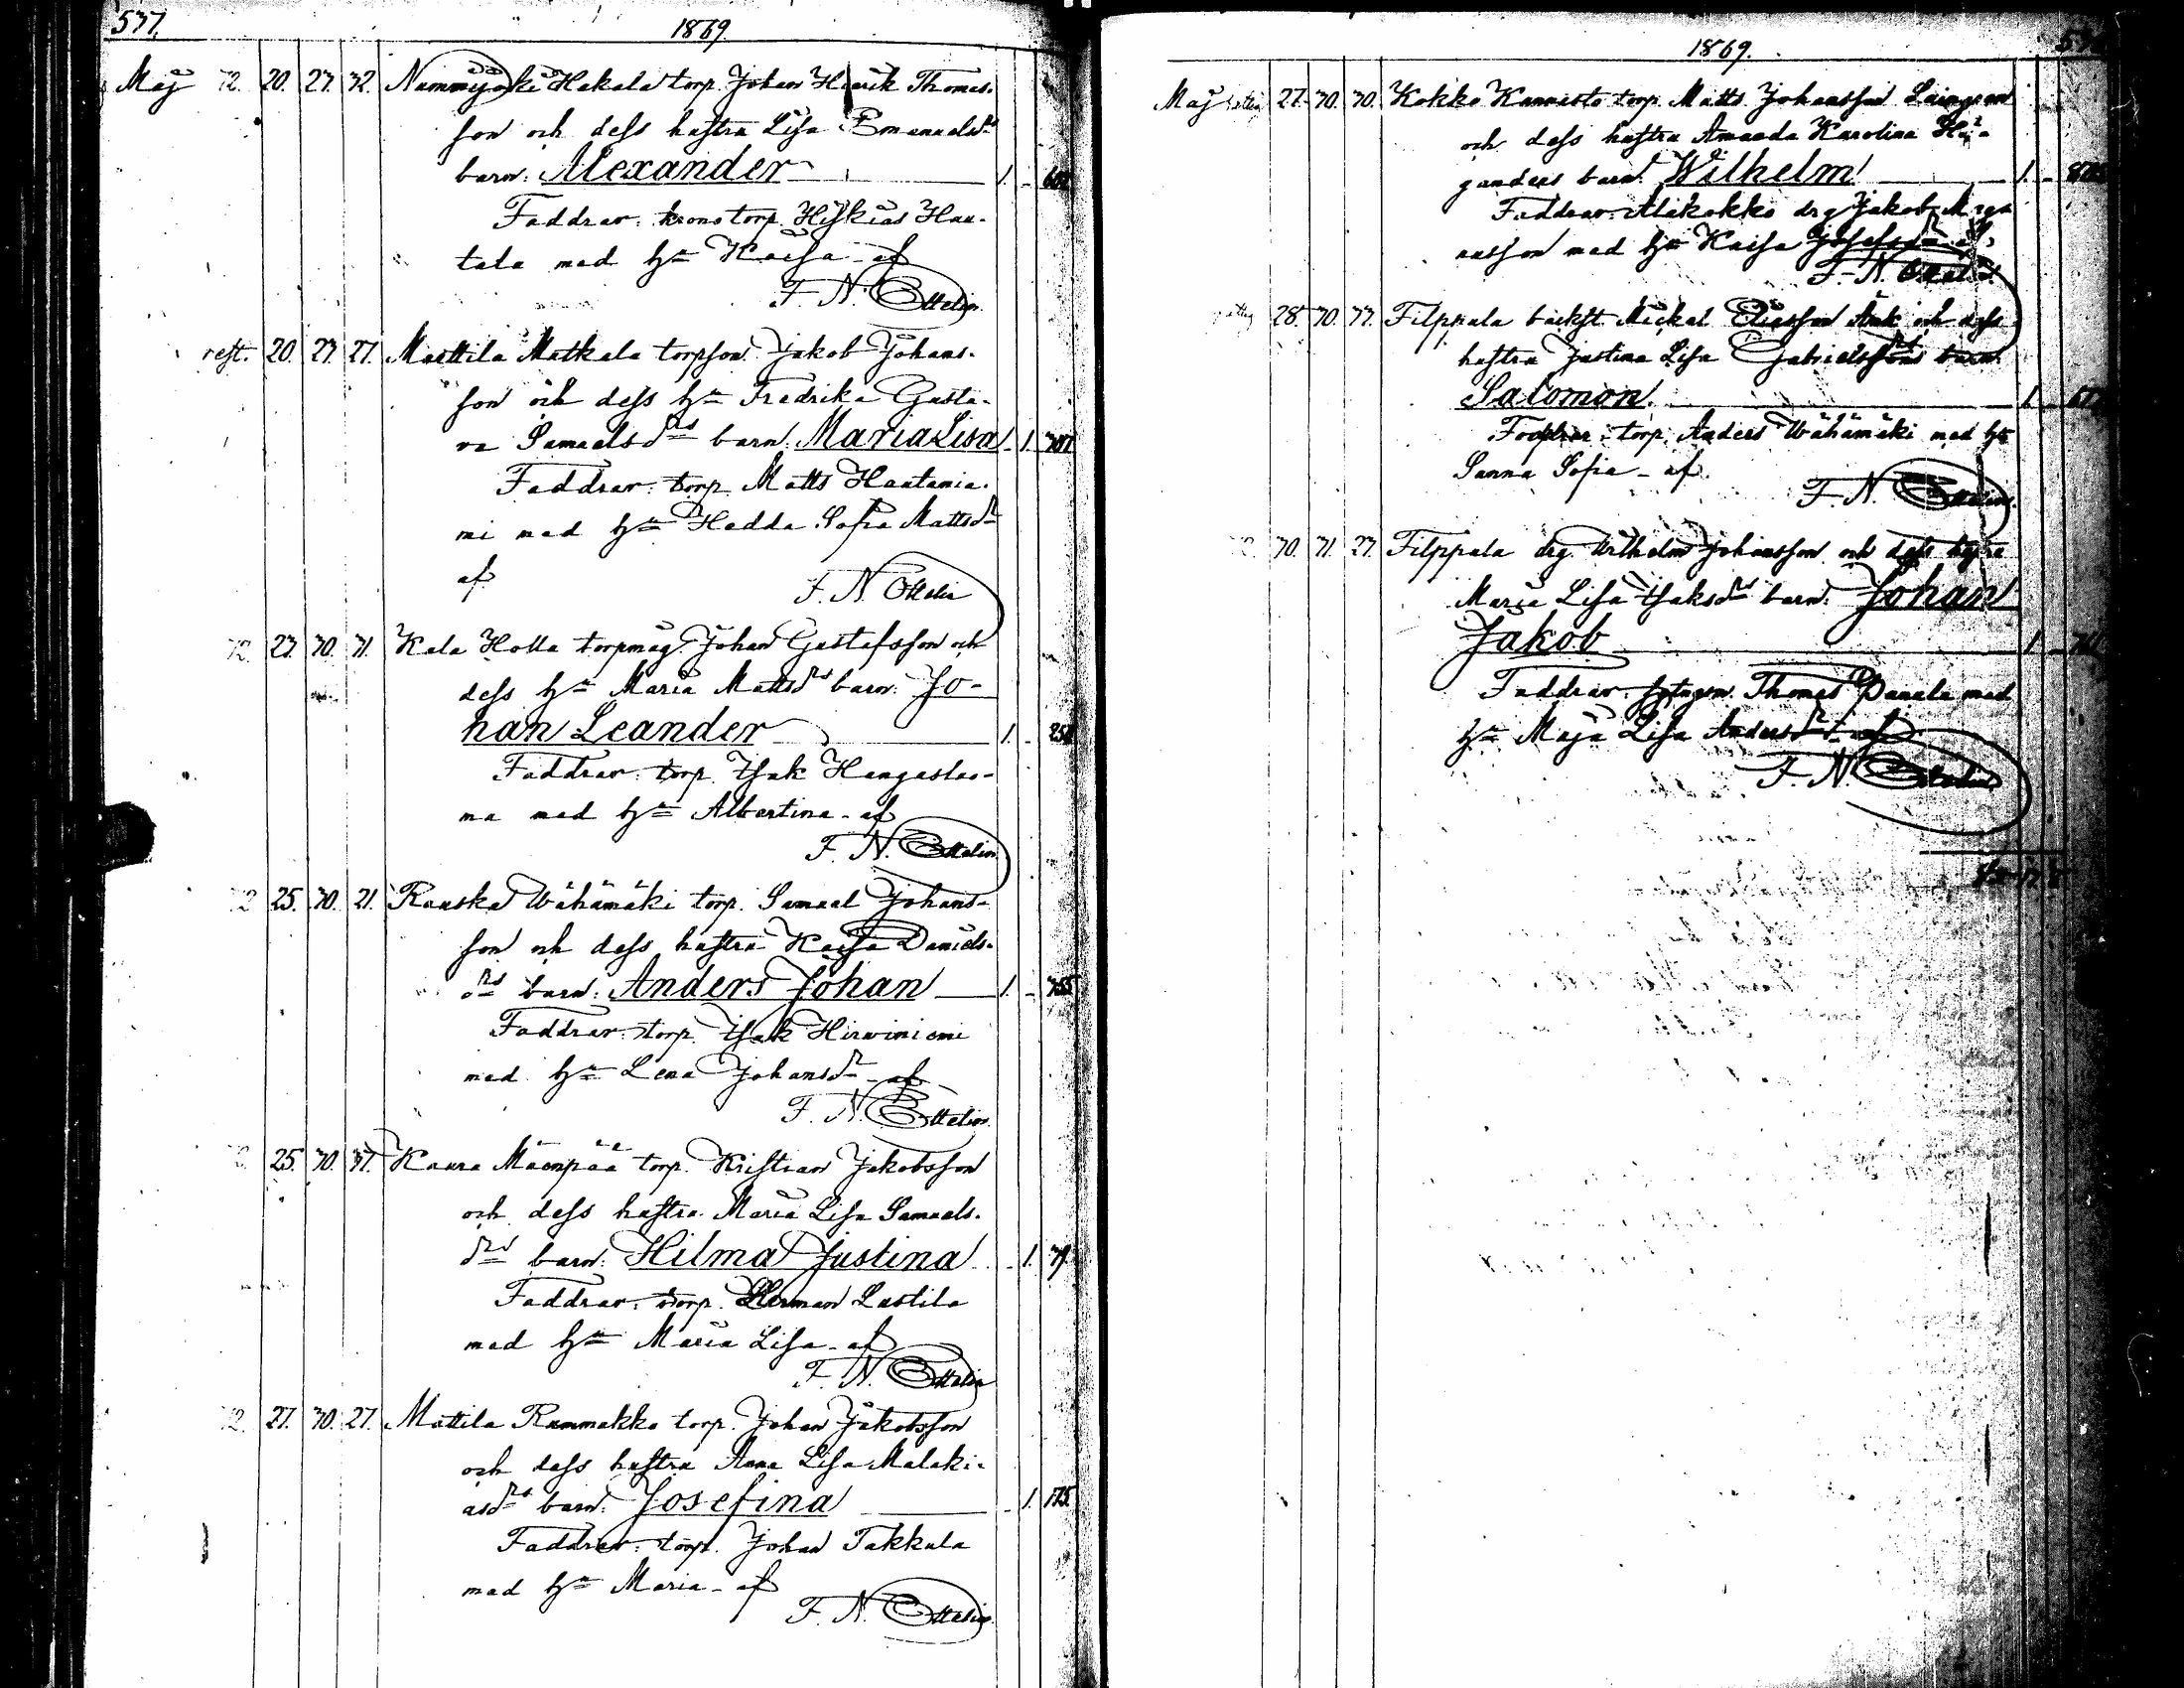 537.
1869.
Maj 72. 20. 27. 32. Nummijoki Hakala torp. Johan Henrik Thomas-
son och dess hustru Lisa Emanuelsdrs
barn: Alexander 1. -
Faddrar: kronotorp. Hiskias Hau-
tala med h. Kaisa - af
F. N. Ottelin.
rest. 20. 27. 27. Marttila Matkala torpson Jakob Johans-
son och dess h. Fredrika Gusta-
va Samuelsdrs barn: Maria Lisa - 1. 707
Faddrar: torp. Matts Hautanie-
mi med h. Hedda Sofia Mattsdr
af
F. N. Ottelin
72. 27. 30. 31. Kala Holla torpmåg Johan Gustafsson och
dess h. Maria Mattsdrs barn: Jo-
han Leander 1. -
Faddrar: torp. Isak Hangasluo-
ma med h. Albertina - af
F. N. Ottelin
72 25. 30. 21. Rauska Wähämäki torp. Samuel Johans-
son och dess hustru Kaisa Daniels-
drs barn: Anders Johan 1. - 755
Faddrar: torp. Isak Hirviniemi
med h. Lena Johansdr - af
F. N. Ottelin.
25. 30. 37. Kaura Mäenpää torp. Kristian Jakobsson
och dess hustru Maria Lisa Samuels-
drs barn: Hilma Justina - 1. 79.
Faddrar: torp. Herman Lustila
med h. Maria Lisa - af
F. N. Ottelin
72. 27. 30. 27. Mattila Rummakko torp. Johan Jakobsson
och dess hustru Anna Lisa Malaki-
asdrs barn: Josefina - 1. 175
Faddrar: torp. Johan Takkula
med h. Maria - af
F. N. Ottelin.
1869.
Maj 27. 30. 30. Kokko Kannisto torp. Matts Johansson
och dess hustru Amanda Karolina
barn: Wilhelm 1. -
Faddrar: Alakokko drg Jakob
med h. Kaisa Josefsdr - af
F. N. Ottelin
28. 30. 77. Filppula backst. Mickel Eliasson och dess
hustru Justina Lisa Gabrielsdrs barn
Salomon. 1.
Faddrar: torp. Anders Wähämäki med h.
Sanna Sofia - af.
F. N. Ottelin.
72. 30. 31. 27. Filppula drg. Wilhelm Johansson och dess hustru
Maria Lisa Isaksdrs barn: Johan
Jakob 1 -
Faddrar: Thomas Panula med
h. Maja Lisa Andersdr - af
F. N. Ottelin